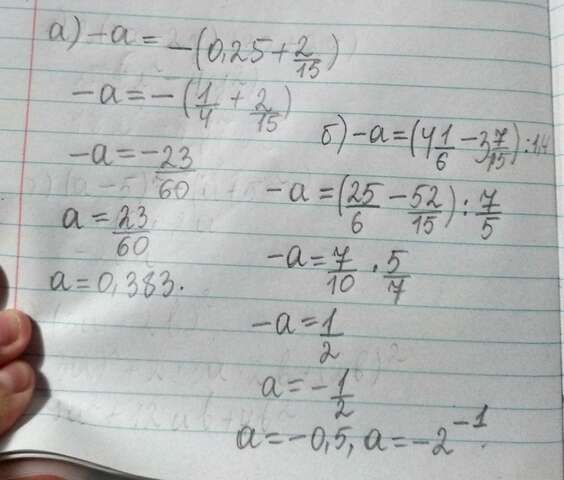 а) -a = -(0,25 + 2/15)
-a = -(1/4 + 2/15)
-a = -23/60
a = 23/60
a = 0,383.
б) -a = (4 1/6 - 3 7/15) : 1,4
-a = (25/6 - 52/15) : 7/5
-a = 7/10 · 5/7
-a = 1/2
a = -1/2
a = -0,5, a = -2^-1.